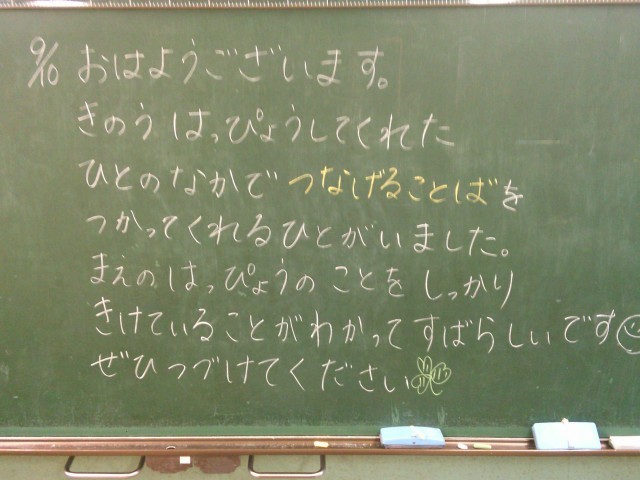 9/10 おはようございます。
きのうはっぴょうしてくれた
ひとのなかでつなげることばを
つかってくれるひとがいました。
まえのはっぴょうのことをしっかり
きけていることがわかってすばらしいです
ぜひつづけてください